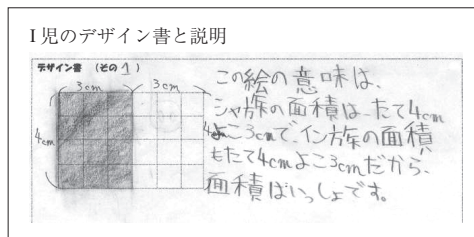 I児のデザイン書と説明
デザイン書 (その1)
3cm 3cm
4cm
4cm
この絵の意味は、
シャ方族の面積は、たて4cm
よこ3cmで、イン方族の面積
もたて4cmよこ3cmだから、
面積はいっしょです。